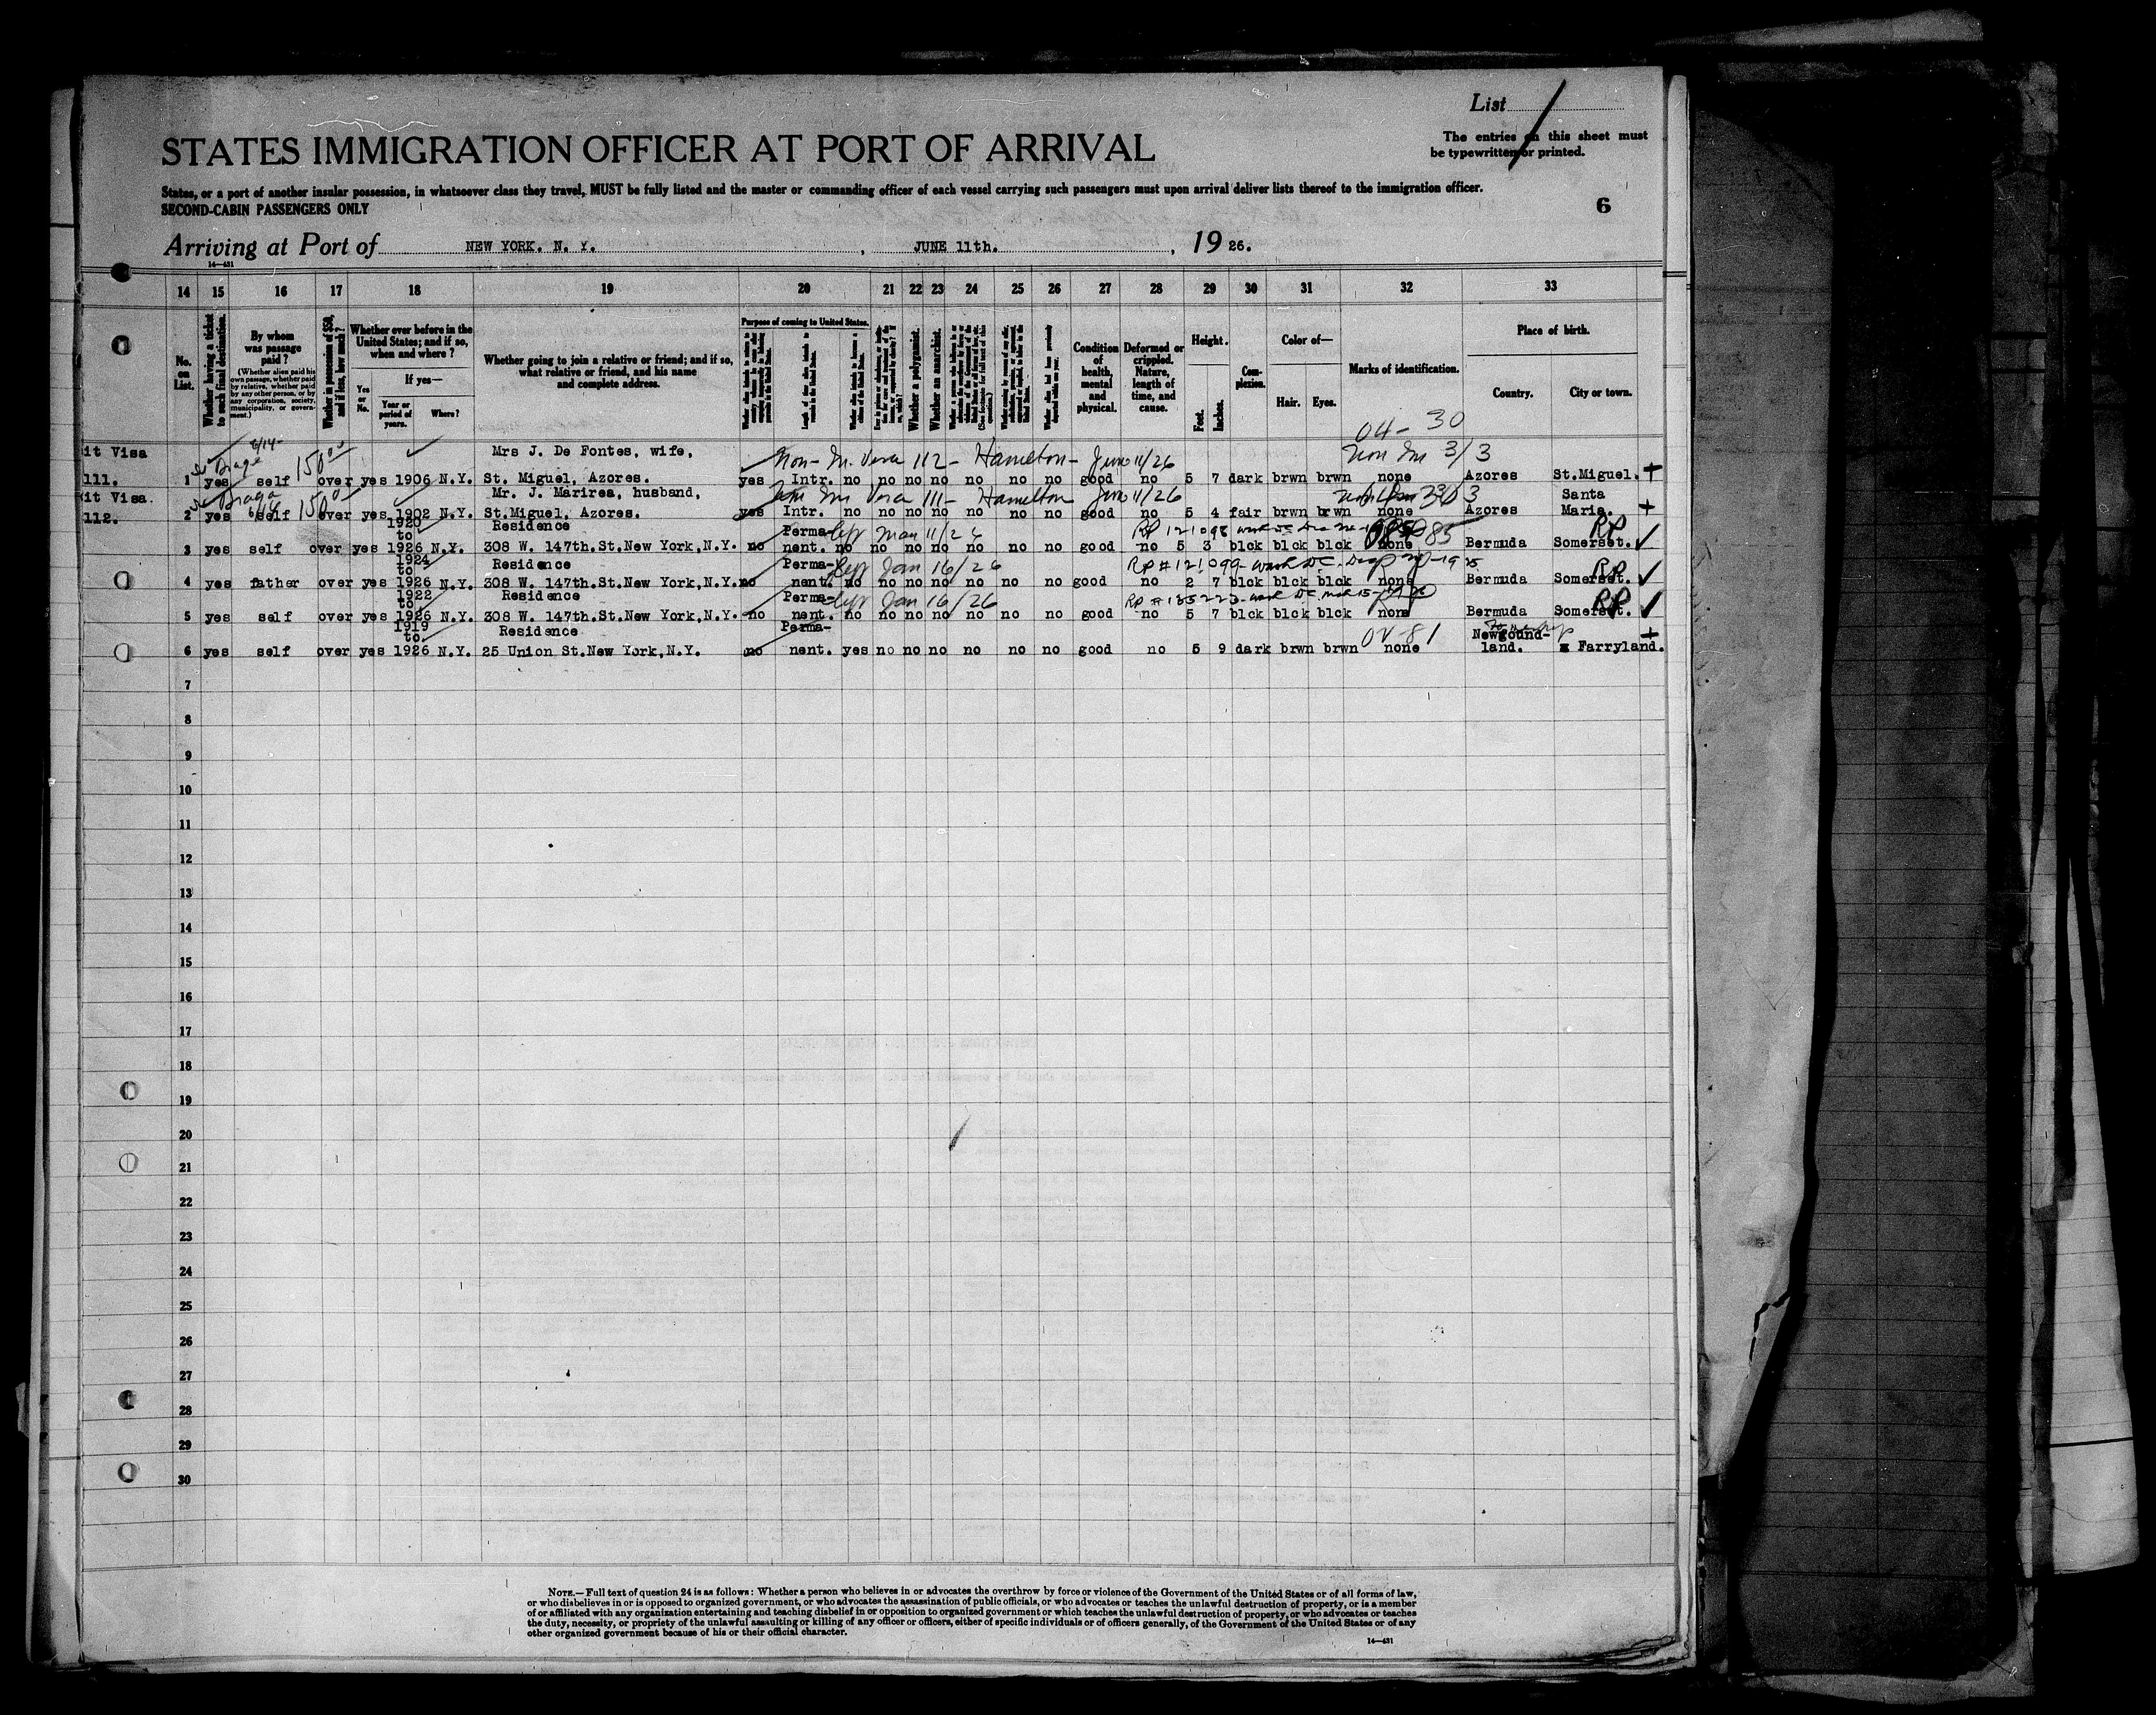 List
The entries on this sheet must
be typewritten or printed.
STATES IMMIGRATION OFFICER AT PORT OF ARRIVAL
States, or a port of another insular possession, in whatsoever class they travel, MUST be fully listed and the master or commanding officer of each vessel carrying such passengers must upon arrival deliver lists thereof to the immigration officer.
SECOND-CABIN PASSENGERS ONLY
6
Arriving at Port of NEW YORK. N. Y. , JUNE 11th. , 19 26.
14—431
14 15 16 17 18 19 20 21 22 23 24 25 26 27 28 29 30 31 32 33
No. on List.
Whether having a ticket to such final destination.
By whom was passage paid?
(Whether alien paid his own passage, whether paid by relative, whether paid by any other person, or by any corporation, society, municipality, or government.)
Whether in possession of $50, and if less, how much?
Whether ever before in the United States; and if so, when and where?
Yes or No.
If yes—
Year or period of years.
Where?
Whether going to join a relative or friend; and if so, what relative or friend, and his name and complete address.
Purpose of coming to United States.
Whether a polygamist.
Whether an anarchist.
Condition of health, mental and physical.
Deformed or crippled. Nature, length of time, and cause.
Height.
Feet.
Inches.
Complexion.
Color of—
Hair.
Eyes.
Marks of identification.
Place of birth.
Country.
City or town.
04-30
it Visa 6/14 150 Mrs J. De Fontes, wife, Non-Im. Visa 112- Hamilton- June 11/26 Non Im 3/3
111. 1 yes self over yes 1906 N.Y. St. Miguel, Azores. yes Intr. no no no no no no no good no 5 7 dark brwn brwn none Azores St.Miguel. +
it Visa. Braga 150 Mr. J. Marirea, husband, Im Visa 111- Hamilton June 11/26 Santa
112. 2 yes self over yes 1902 N.Y. St.Miguel, Azores. yes Intr. no no no no no no no good no 5 4 fair brwn brwn none Azores Maria. +
1920 to Residence Perma- left Mar 11/26 RP 121098 RP
3 yes self over yes 1926 N.Y. 308 W. 147th.St.New York,N.Y. no nent. no no no no no no no good no 5 3 blck blck blck none Bermuda Somerset. ✓
1924 to Residence Perma- left Jan 16/26 RP # 121099- Wash DC. RP
4 yes father over yes 1926 N.Y. 308 W. 147th.St.New York,N.Y. no nent. no no no no no no no good no 2 7 blck blck blck none Bermuda Somerset. ✓
1922 to Residence Perma- left Jan 16/26 RP # RP
5 yes self over yes 1926 N.Y. 308 W. 147th.St.New York,N.Y. no nent. no no no no no no no good no 5 7 blck blck blck none Bermuda Somerset. ✓
1919 to Residence Perma- OV-81 Newfound- +
6 yes self over yes 1926 N.Y. 25 Union St.New York,N.Y. no nent. yes no no no no no no good no 5 9 dark brwn brwn none land. Farryland.
7
8
9
10
11
12
13
14
15
16
17
18
19
20
21
22
23
24
25
26
27
28
29
30
NOTE.—Full text of question 24 is as follows: Whether a person who believes in or advocates the overthrow by force or violence of the Government of the United States or of all forms of law,
or who disbelieves in or is opposed to organized government, or who advocates the assassination of public officials, or who advocates or teaches the unlawful destruction of property, or is a member
of or affiliated with any organization entertaining and teaching disbelief in or opposition to organized government or which teaches the unlawful destruction of property, or who advocates or teaches
the duty, necessity, or propriety of the unlawful assaulting or killing of any officer or officers, either of specific individuals or of officers generally, of the Government of the United States or of any
other organized government because of his or their official character.
14—431